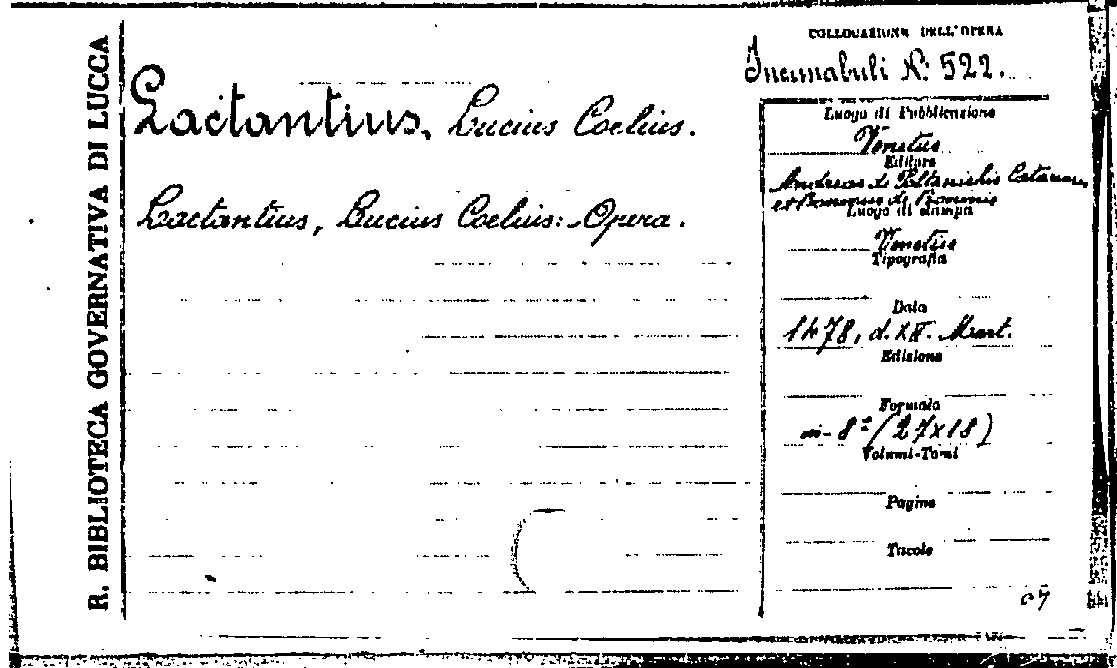 R. BIBLIOTECA GOVERNATIVA DI LUCCA
COLLOCAZIONE DELL'OPERA
Incunabuli N. 522.
Lactantius, Lucius Coelius.
Lactantius, Lucius Coelius: Opera.
Luogo di Pubblicazione
Venetiis
Editore
Andreas de
et de
Luogo di stampa
Venetiis
Tipografia
Data
1478, d. XII. Mart.
Edizione
Formato
in-8º (27x18)
Volumi-Tomi
Pagine
Tavole